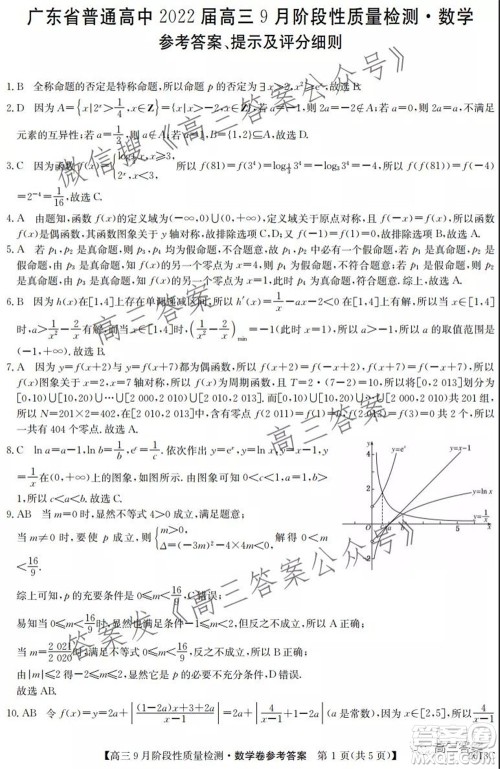 广东省普通高中 2022 届高三 9 月阶段性质量检测·数学
参考答案、提示及评分细则
1. B 全称命题的否定是特称命题,所以命题 p 的否定为∃x>2,x²≥eˣ,故选 B.
2. D 因为 A={x|2ˣ>1/4,x∈Z}={x|x>-2,x∈Z},若 a=-1,则 2a=-2∉A;若 a=0,则 2a=a,不满足
元素的互异性;若 a=1/2,则 a∉A;若 a=1,B={1,2}⊆A,故选 D.
3. C 因为 f(x)= x,x≥3, 2ˣ,x<3, 所以 f(81)=f(3⁴)= 3⁴=-4,所以 f(f(81))=f(-4)
=2⁻⁴=1/16,故选 C.
4. A 由题知,函数 f(x)的定义域为(-∞,0)∪(0,+∞),定义域关于原点对称,且 f(-x)=f(x),所以函数
f(x)是偶函数,其函数图象关于 y 轴对称,故排除选项 C、D;又 f(-1)=f(1)=0,故排除选项 B,故选 A.
5. A 若 p₁,p₂ 是真命题,则 p₃,p₄ 均为假命题,不合题意,故 p₁,p₂ 中必有一个假命题.若 p₁ 是假命题,
p₄ 是真命题,则 f(x)的另一个零点为 x=4,则 p₄ 为假命题,不符合题意;若 p₂ 是假命
题,p₁ 是真命题,则 f(x)的另一个零点为 x=0,此时 p₄ 为假命题,符合题意.综上,故选 A.
6. B 因为 h(x)在[1,4]上存在单调递减区间,所以 h′(x)=1/x-ax-2<0 在[1,4]上有解,所以当 x∈[1,4]
时,a>1/x²-2/x 有解,而当 x∈[1,4]时,(1/x²-2/x)min=-1(此时 x=1),所以 a>-1,所以 a 的取值范围是
(-1,+∞).故选 B.
7. A 因为 y=f(x+2)与 y=f(x+7)都为偶函数,所以 f(-x+2)=f(x+2),f(-x+7)=f(x+7),所以
f(x)图象关于 x=2,x=7 轴对称,所以 f(x)为周期函数,且 T=2·(7-2)=10,所以将[0,2 013]划分为
[0,10)∪[10,20)∪…∪[2 000,2 010)∪[2 010,2 013].而[0,10)∪[10,20)∪…∪[2 000,2 010)共 201 组,
所以 N=201×2=402,在[2 010,2 013]中,含有零点 f(2 011)=f(1)=0,f(2 013)=f(3)=0 共 2 个,所以
一共有 404 个零点.故选 A.
8. C ln a=a-1,ln b=1/b,eᶜ=1/c.依次作出 y=eˣ,y=ln x,y=x-1,y
=1/x在(0,+∞)上的图象,如图所示.由图象可知 0<c<1,a=1,b>1,
所以 c<a<b.故选 C.
y
y=eˣ
y=x-1
y=ln x
y=1/x
x
9. AB 当 m=0 时,显然不等式 4>0 成立,满足题意;
当 m≠0 时,要使不等式成立,则 m>0, (-3m)²-4×4m<0, 解得 0<m
<16/9.
综上可知,p 的充要条件是 0≤m<16/9,C 错误;
易知当 0≤m≤1 时,显然也满足条件,但反之不成立,所以 A 正确;
当 m= 时,满足条件 0≤m<16/9,但反之不成立,所以 B 正确;
由|m|≤2 得-2≤m≤2,显然已知 p 是不充分不必要条件,D 错误.
故选 AB.
10. AB 令 f(x)=y=2a+|(1-2a)x+3+2a / x-1|=2a+|4/x-1+1-2a|(a 为常数).因为 x∈[2,5],所以4/x-1
【高三 9 月阶段性质量检测·数学卷参考答案 第 1 页(共 5 页)】
微信搜《高三答案公众号》
高三答案
答案发《高三答案公众号》
高三答案